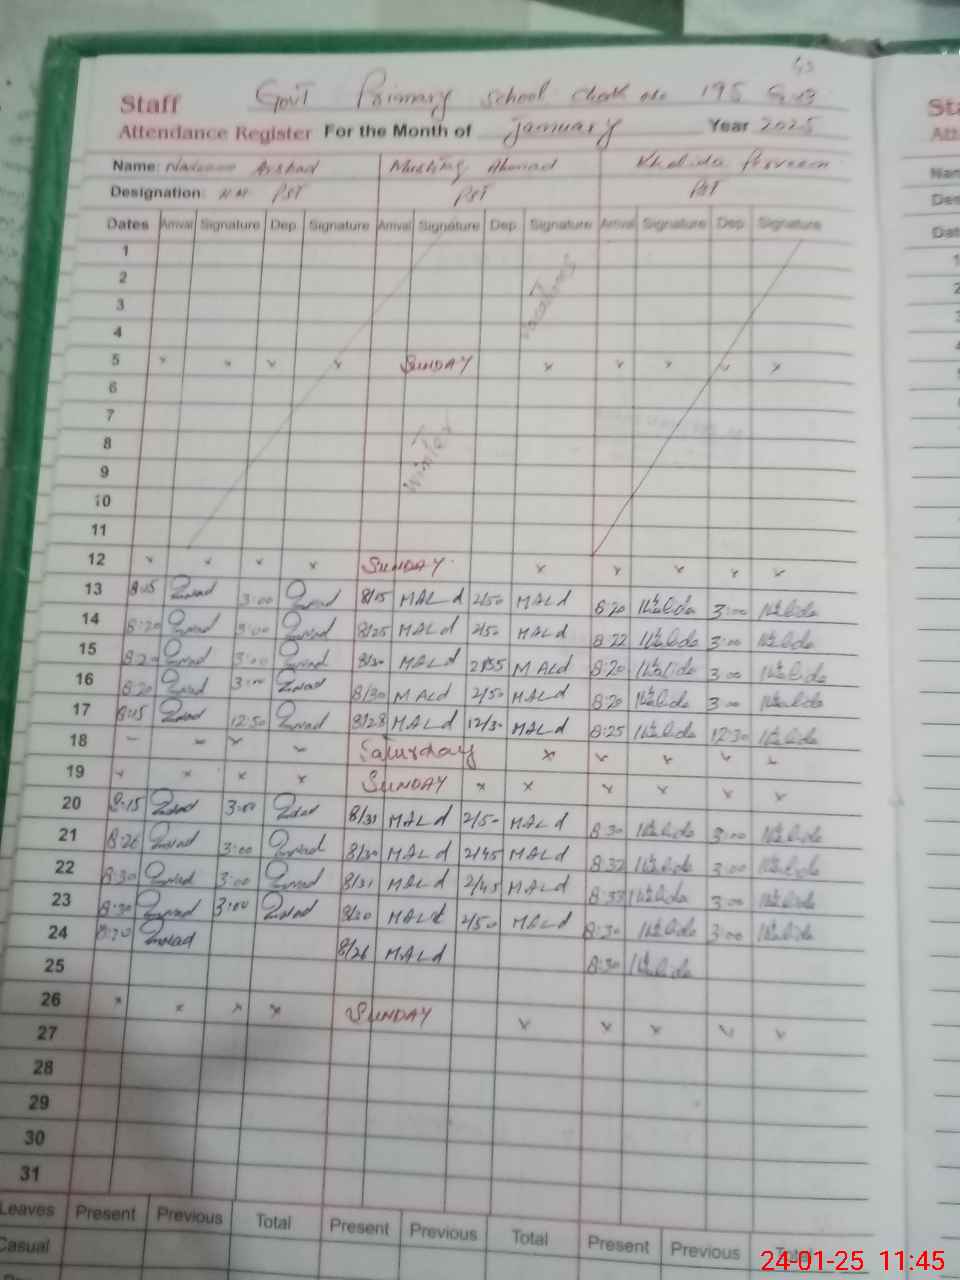 Staff Govt Primary School Chak No 195 G.B
Attendance Register For the Month of January Year 2025
Name: Arshad Mushtaq Ahmad Khalida Parveen
Designation: PST PST PST
Dates Arrival Signature Dep. Signature Arrival Signature Dep. Signature Arrival Signature Dep. Signature
1
2 Vacations
3
4
5 × × × × SUNDAY × × × × ×
6
7
8
9 Winter
10
11
12 × × × × SUNDAY × × × × ×
13 8:15 3:00 8/15 MALd 2/50 MALd 8:20 Khalida 3:00 Khalida
14 8:20 3:00 8/25 MALd 2/50 MALd 8:22 Khalida 3:00 Khalida
15 8:20 3:00 8/30 MALd 2/55 MALd 8:20 Khalida 3:00 Khalida
16 8:20 3:00 8/30 MALd 2/50 MALd 8:20 Khalida 3:00 Khalida
17 8:15 12:50 8/28 MALd 12/30 MALd 8:25 Khalida 12:30 Khalida
18 Saturday × × × × ×
19 × × × × SUNDAY × × × × × ×
20 8:15 3:00 8/31 MALd 2/50 MALd 8:30 Khalida 3:00 Khalida
21 8:26 3:00 8/30 MALd 2/45 MALd 8:32 Khalida 3:00 Khalida
22 8:30 3:00 8/31 MALd 2/45 MALd 8:33 Khalida 3:00 Khalida
23 8:30 3:00 8/30 MALd 2/50 MALd 8:30 Khalida 3:00 Khalida
24 8:20 8/26 MALd 8:30 Khalida
25
26 × × × × SUNDAY × × × × ×
27
28
29
30
31
Leaves Present Previous Total Present Previous Total Present Previous Total
Casual
24-01-25 11:45